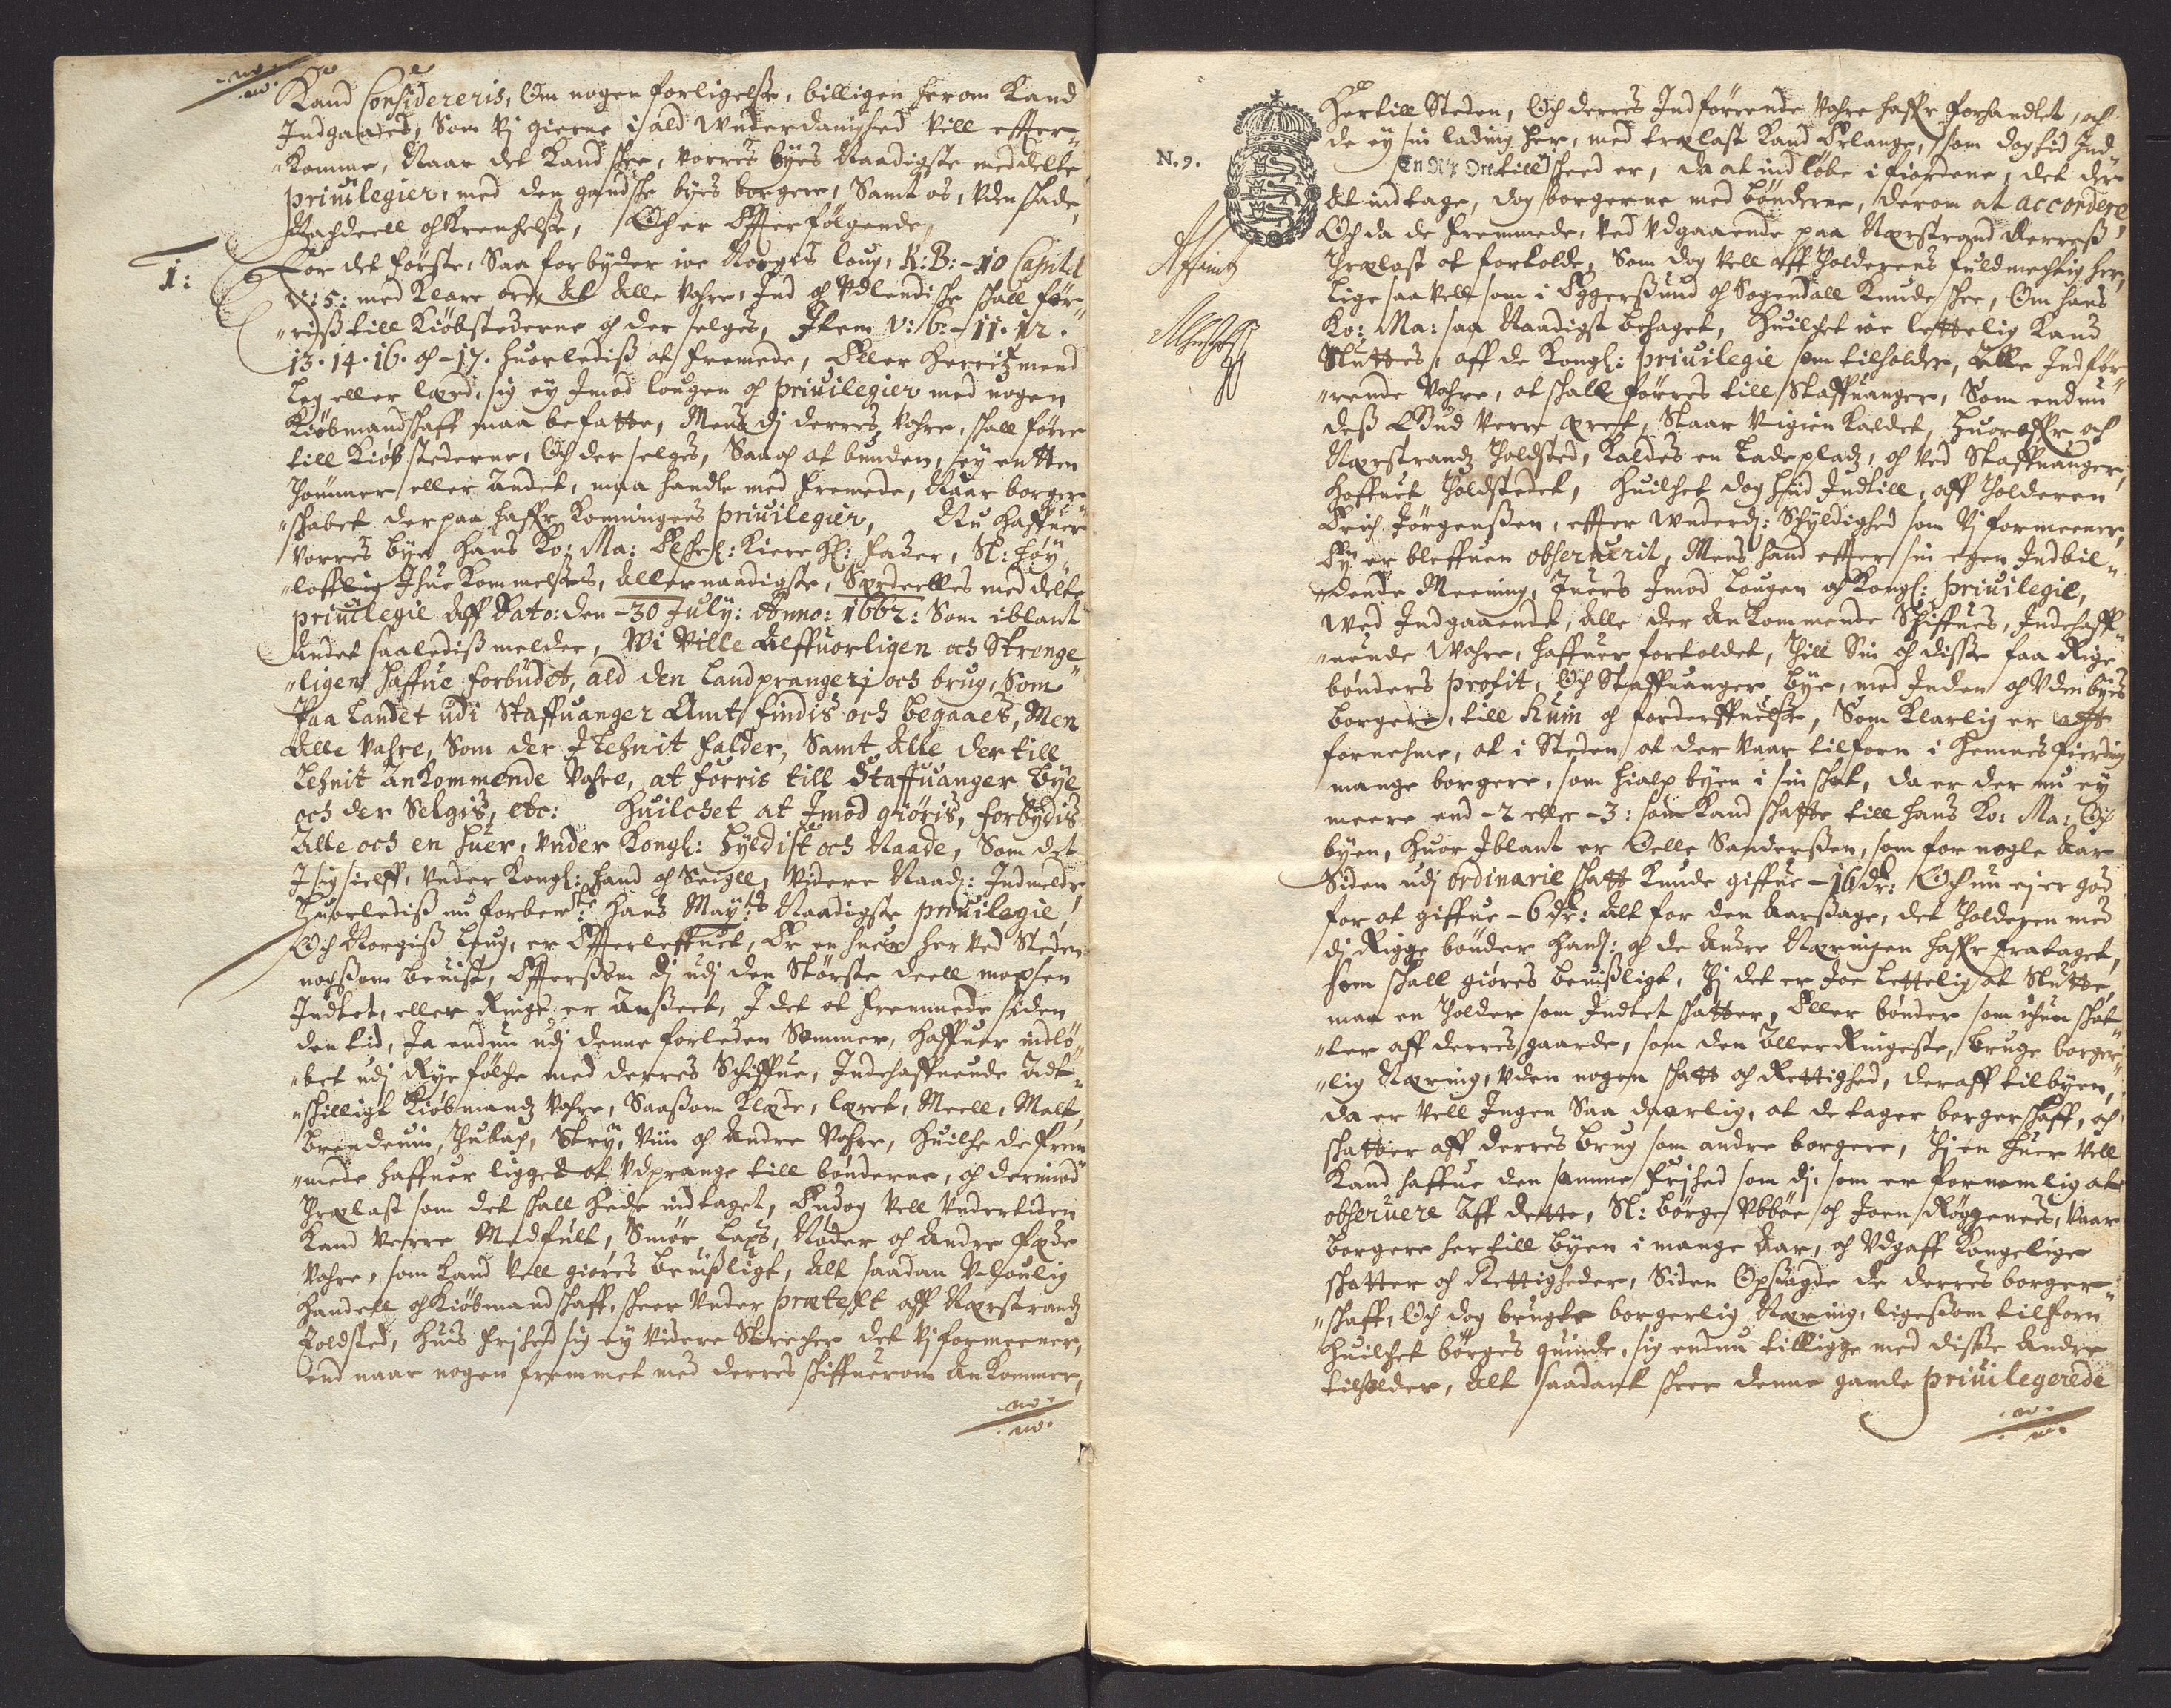 Kand Considereris, Om nogen forligelse, billigen herom Kand
Indgaaes, Som Vj gierne i ald Underdanighed vill effter„
„komme, Naar det Kand skee, vorres byes Naadigste meddelte
privilegier, med den gandske byes borgere, Samt os, uden skade,
Nachdeell och Krenchelse, Och er Effterfölgende,
1: For det förste, Saa forbyder ioe Norges loug, K: B: - 10 Capitel
V: 5: med klare ord, At Alle vahre, Ind och Udlendiske skall för„
„riss till Kiöbstederne och der selges, Item V: 6: - 11 . 12 .
13 . 14 . 16 . och - 17 . huorlediss at fremede, Eller Herritzmend
leg eller lærd, sig ey Imod lougen och privilegier med nogen
Kiöbmandskaff maa befatte, Mens dj derres vahre, skall före
till Kiöbstederne, Och der selges, Saa och at bunden, ey entten
Tömmer eller Andet, maa handle med fremede, Naar borger„
„skabet derpaa haffr Konningens privilegier, Nu haffuer
vorres bye Hans Ko: Ma: Kiere H: fader, Sl: Höy„
„lofflig Ihuekommelse, Allernaadigste, Særdeelles meddelte
privilegie Aff Dato: den - 30 July: Anno: 1662: Som iblant
Andet saalediss melder, Wi Ville Alffuorligen och Strenge„
„ligen haffue forbudet, ald den Landprangerj och brug, Som
paa Landet udi Staffuanger Amt findis och begaaes, Men
Alle vahre, Som der I Lehnit falder, Samt Alle der till
Lehnit Ankommende Vahre, at förris till Staffuanger Bye
och der Selgis, etc: Huilchet at Imod giöris, forbydis
Alle och en huer, under Kongl: Hyldist och Naade, Som det
I sig sielff, under Kongl: Hand och Seigell, videre Naad: Indmelder,
Huorlediss nu forberte: Hans Mayts: Naadigste privilegie
Och Norgiss loug, er Effterleffuet, Er en huer her ved Steden
nochsom beuist, Efftersom dj udj den Störste deell
Indtet, eller Ringe er Anseet, I det at fremmede siden
den tid, Ja endnu udj denne forleden Sommer, haffuer indlö„
„bet udj Ryefölche med derres Schiffue, Indehaffuende Adt„
„skilligt Kiöbmandz vahre, Saasom Klæde, lærret, Meell, Malt,
brendeuin, Tubach, Viin och Andre Vahre, Huilche de frem„
„mede haffuer ligget at Udprange till bönderne, och derimod
Trælast som det skall hede indtaget, Endog vell undertiden
Kand verre Medfult, Smör, Laxs, Nöder och Andre fæde
vahre, som Kand vell giöres beuissligt, Alt saadan V-loulig
Handell och Kiöbmandskaff, skeer under prætext aff Nærstrandz
Toldsted, huis frjhed sig ey videre Strecher det Vj formeener,
end naar nogen fremmet med derres skiffuerom Ankommer,
N. 9.
En Rix Ort
Hertill Steden, Och derres Indförende vahre haffr forhandlet, och
de ey sin lading her, med trælast Kand Erlange, som dog hid Ind„
till skeed er, da at indlöbe i fiordene, det der
At indtage, dog borgerne med bönderne, derom at accordere,
Och da de fremmede, ved udgaaende paa Nærstrand derress
Trælast at fortolde, Som dog vell aff Tolderens fuldmechtig her,
lige saa vell som i Eggersund och Sogendall kunde skee, Om hans
Ko: Ma: saa Naadigst behaget, Huilchet ioe lettelig Kand
Sluttes, aff de Kongl: privilegie som tilholder, Alle Indför„
„rende vahre, at skall förres till Staffuanger, Som endnu
dess Gud verre æret, Staar Huoreffter och
Nærstrandz Toldsted, Kaldes en Ladeplads, och ved Staffuanger,
Hoffuet Toldstedet, Huilchet dog hid Indtill, aff Tolderen
Erich Jörgenssen, effter underd: Skyldighed som Vj formeener,
Ey er bleffuen observerit, Mens hand effter sin egen Indbil„
„dende Meening, Imod lougen och Kongl: privilegie,
Wed Indgaaende, Alle der Ankommende Skiffues, Indehaff„
„uende Wahre, haffuer fortoldet, Till Sin och disse faa Rige
bönders profit, Och Staffuanger bye, med Inden och Uden byes
borgere, till Ruin och forderffuelse, Som klarlig er at
fornehme, at i Steden at der vaar tilforn i Hennes fierding
mange borgere, som hialp byen i sin skat, da er der nu ey
meere end - 2 eller - 3: som Kand skatte till hans Ko: Ma: Och
byen, Huor Iblant er Oelle Sanderssen, som for nogle Aar
Siden udj ordinarie skatt kunde giffue - 16 dr: Och nu ej er god
for at giffue - 6 dr: Alt for den Aarsage, det Tolderen med
dj Rigge bönder Hans: och de Andre Næringen haffr frataget,
som skall giöres beuissligt, Thj det er Joe lettelig at Slutte,
maa en Tolder som Indtet skatter, Eller bönder som ichun skat„
„ter aff derres gaarde, som den Aller Ringeste, bruge borger„
„lig Næring, uden nogen skatt och Rettighed, deraff till byen,
da er vell Ingen Saa daarlig, at de tager borgerskaff, och
skatter aff derres brug som andre borgere, Thj en huer vell
Kand haffue den samme frjhed som dj, som er fornemlig at
observere Aff dette, Sl: Börge Ubböe och Joen Röggenes, vaar
borgere her till byen i mange Aar, och Udgaff Kongelige
skatter och Rettigheder, Siden Opsagde de derres borger„
„skaff, Och dog brugte borgerlig Næring, ligesom tilforn
Huilchet börges quinde, sig endnu tilligge med disse Andre
tilholder, Alt saadant skeer denne gamle privilegerede